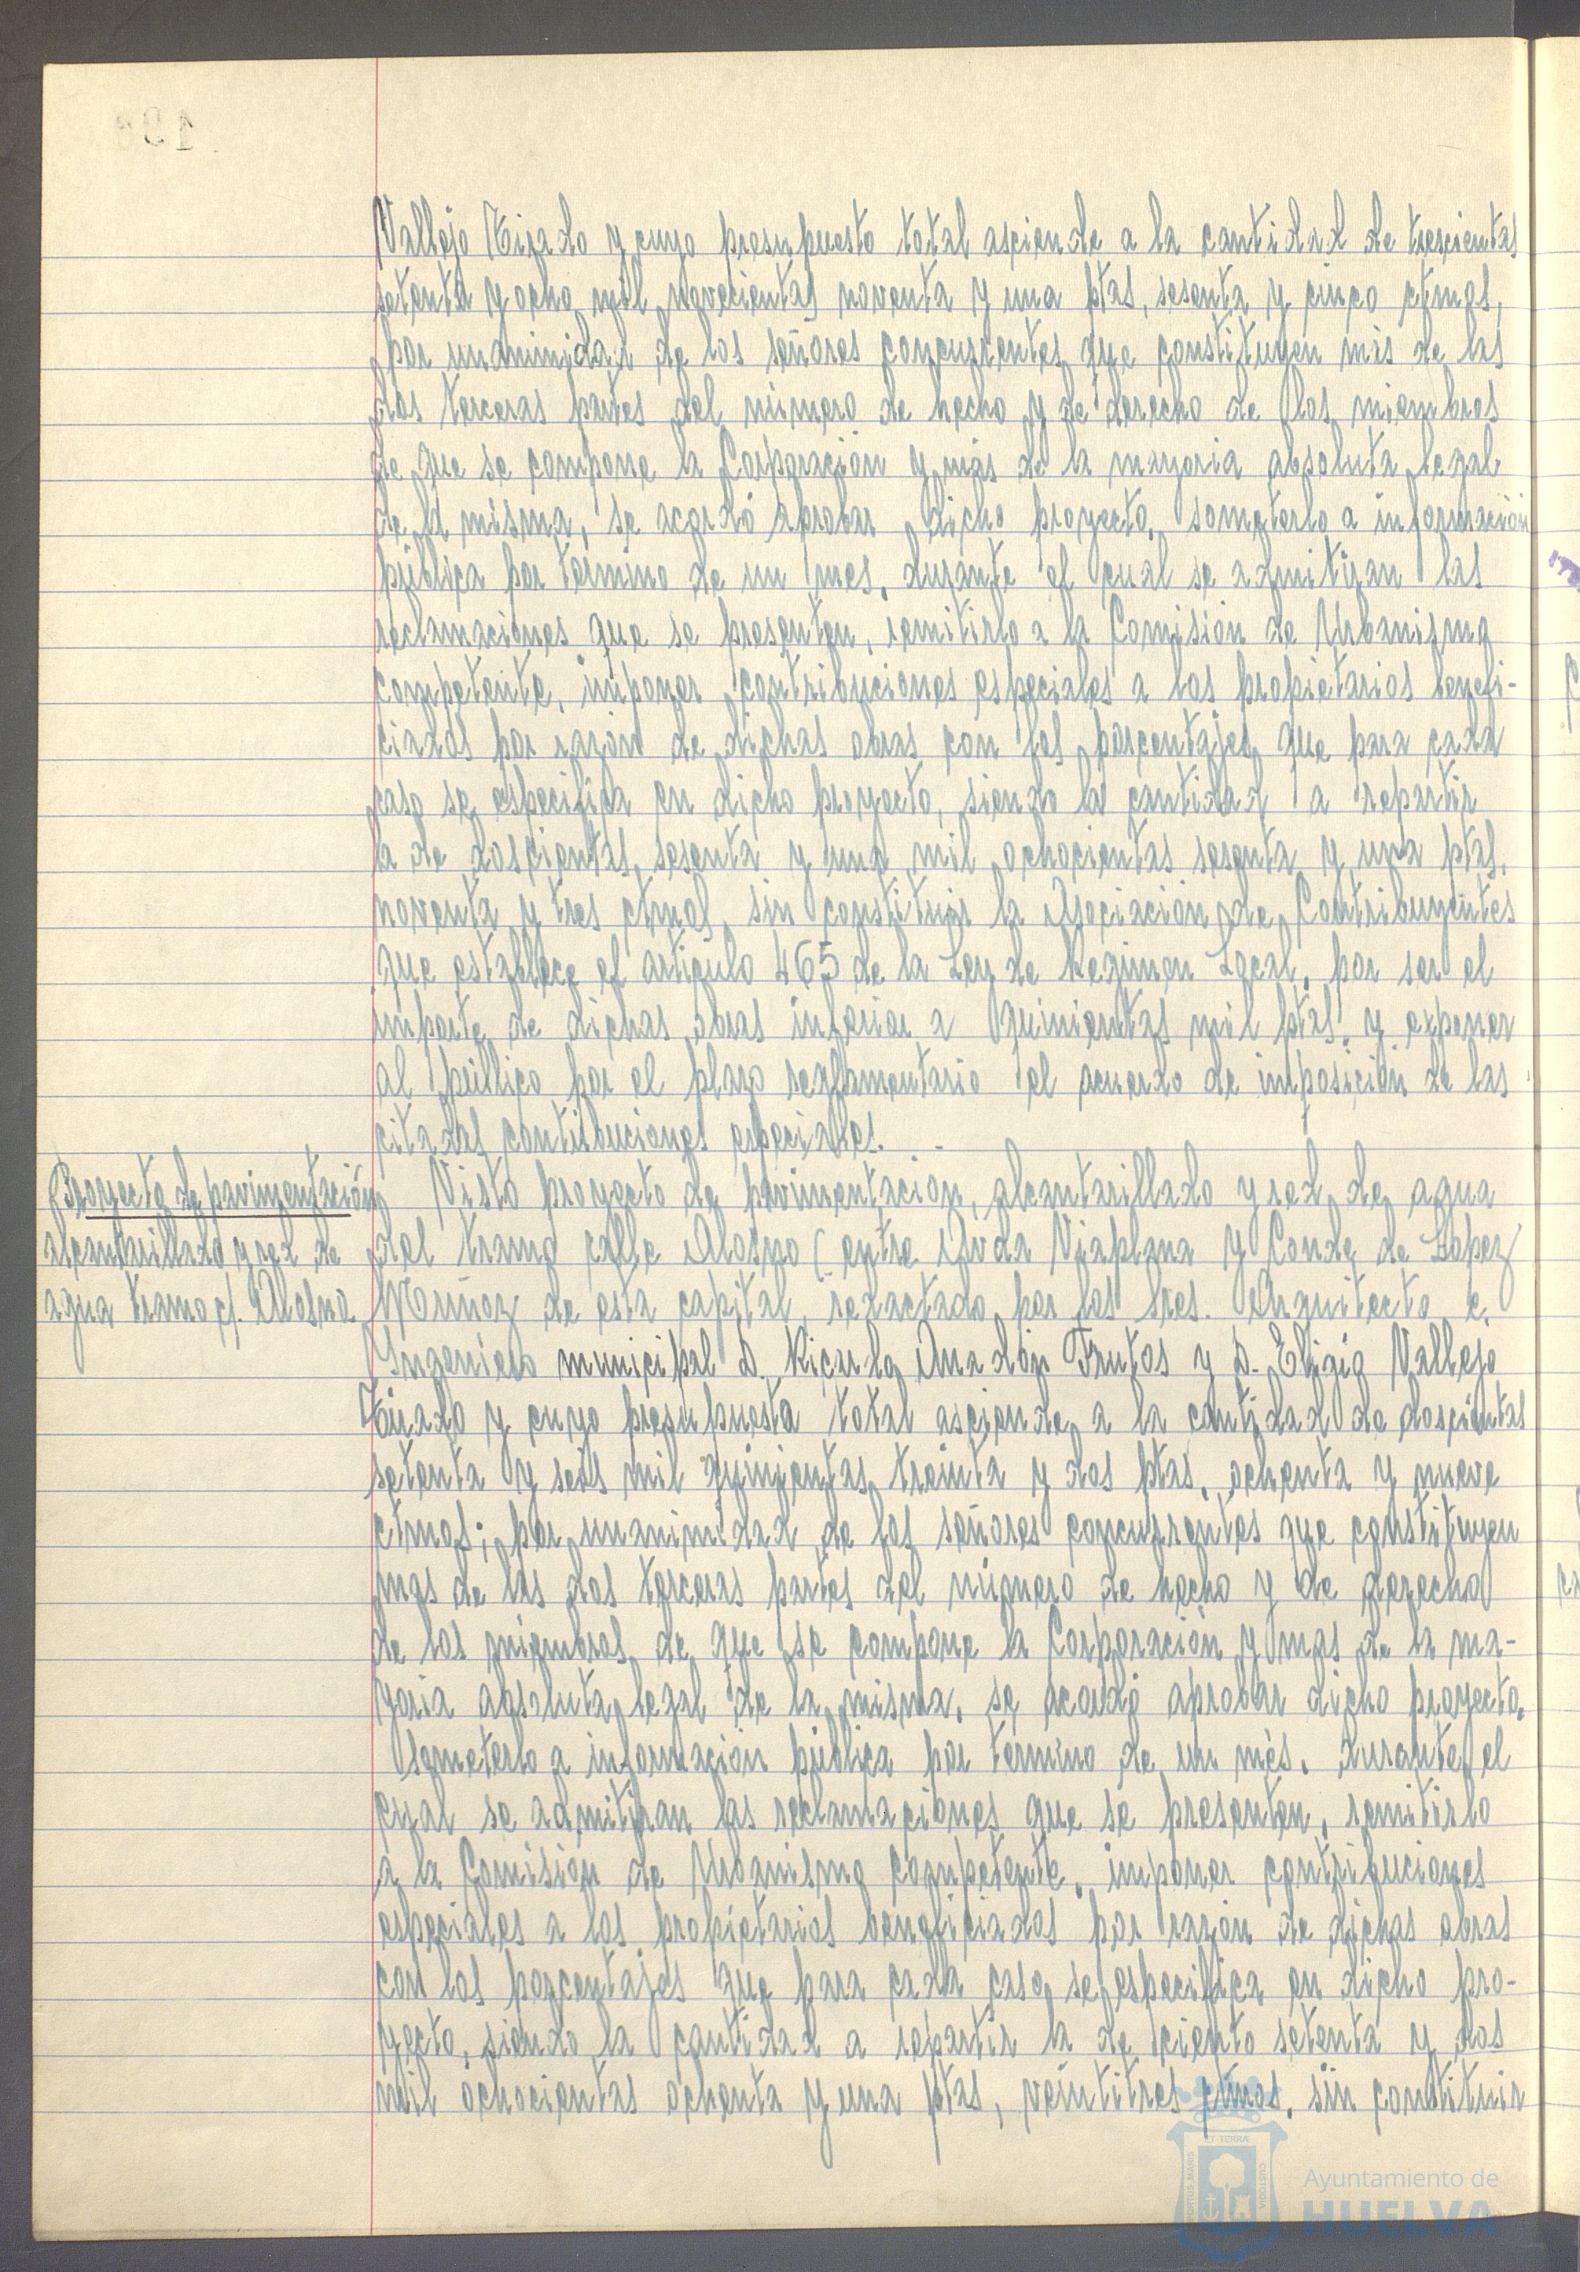 Vallejo Tirado y cuyo presupuesto total asciende a la cantidad de trescientas
setenta y ocho mil novecientas noventa y una ptas, sesenta y cinco ctmos,
por unanimidad de los señores concurrentes que constituyen más de las
dos terceras partes del número de hecho y de derecho de los miembros
de que se compone la Corporación y más de la mayoria absoluta legal
de la misma, se acordó aprobar dicho proyecto, someterlo a información
pública por término de un mes, durante el cual se admitiran las
reclamaciones que se presenten, remitirlo a la Comisión de Urbanismo
competente, imponer contribuciones especiales a los propietarios benefi-
ciados por razón de dichas obras con los porcentajes que para cada
caso se especifica en dicho proyecto, siendo la cantidad a repartir
la de doscientas sesenta y una mil ochocientas sesenta y una ptas,
noventa y tres ctmos, sin constituir la Asociación de Contribuyentes
que establece el artículo 465 de la Ley de Regimen Local, por ser el
importe de dichas obras inferior a quinientas mil ptas. y exponer
al público por el plazo reglamentario el acuerdo de imposición de las
citadas contribuciones especiales.
Proyecto de pavimentación
alcantarillado y red de
agua tramo c/. Alosno.
Visto proyecto de pavimentación, alcantarillado y red de agua
del tramo calle Alosno (entre Avda Viaplana y Conde de López
Muñoz de esta capital, redactado por los Sres. Arquitecto e
Ingeniero municipal D. Ricardo Anadón Frutos y D. Eligio Vallejo
Tirado y cuyo presupuesto total asciende a la cantidad de doscientas
setenta y seis mil quinientas treinta y dos ptas, ochenta y nueve
ctmos; por unanimidad de los señores concurrentes que constituyen
mas de las dos terceras partes del número de hecho y de derecho
de los miembros de que se compone la Corporación y mas de la ma-
yoria absoluta legal de la misma, se acordó aprobar dicho proyecto,
someterlo a información pública por termino de un mès, durante el
cual se admitiran las reclamaciones que se presenten, remitirlo
a la Comisión de Urbanismo competente, imponer contribuciones
especiales a los propietarios beneficiados por razón de dichas obras
con los porcentajes que para cada caso se especifica en dicho pro-
yecto, siendo la cantidad a repartir la de ciento setenta y dos
mil ochocientas ochenta y una ptas, veintitres ctmos, sin constituir
ET TERRÆ
PORTUS MARIS
CUSTODIA
Ayuntamiento de
HUELVA